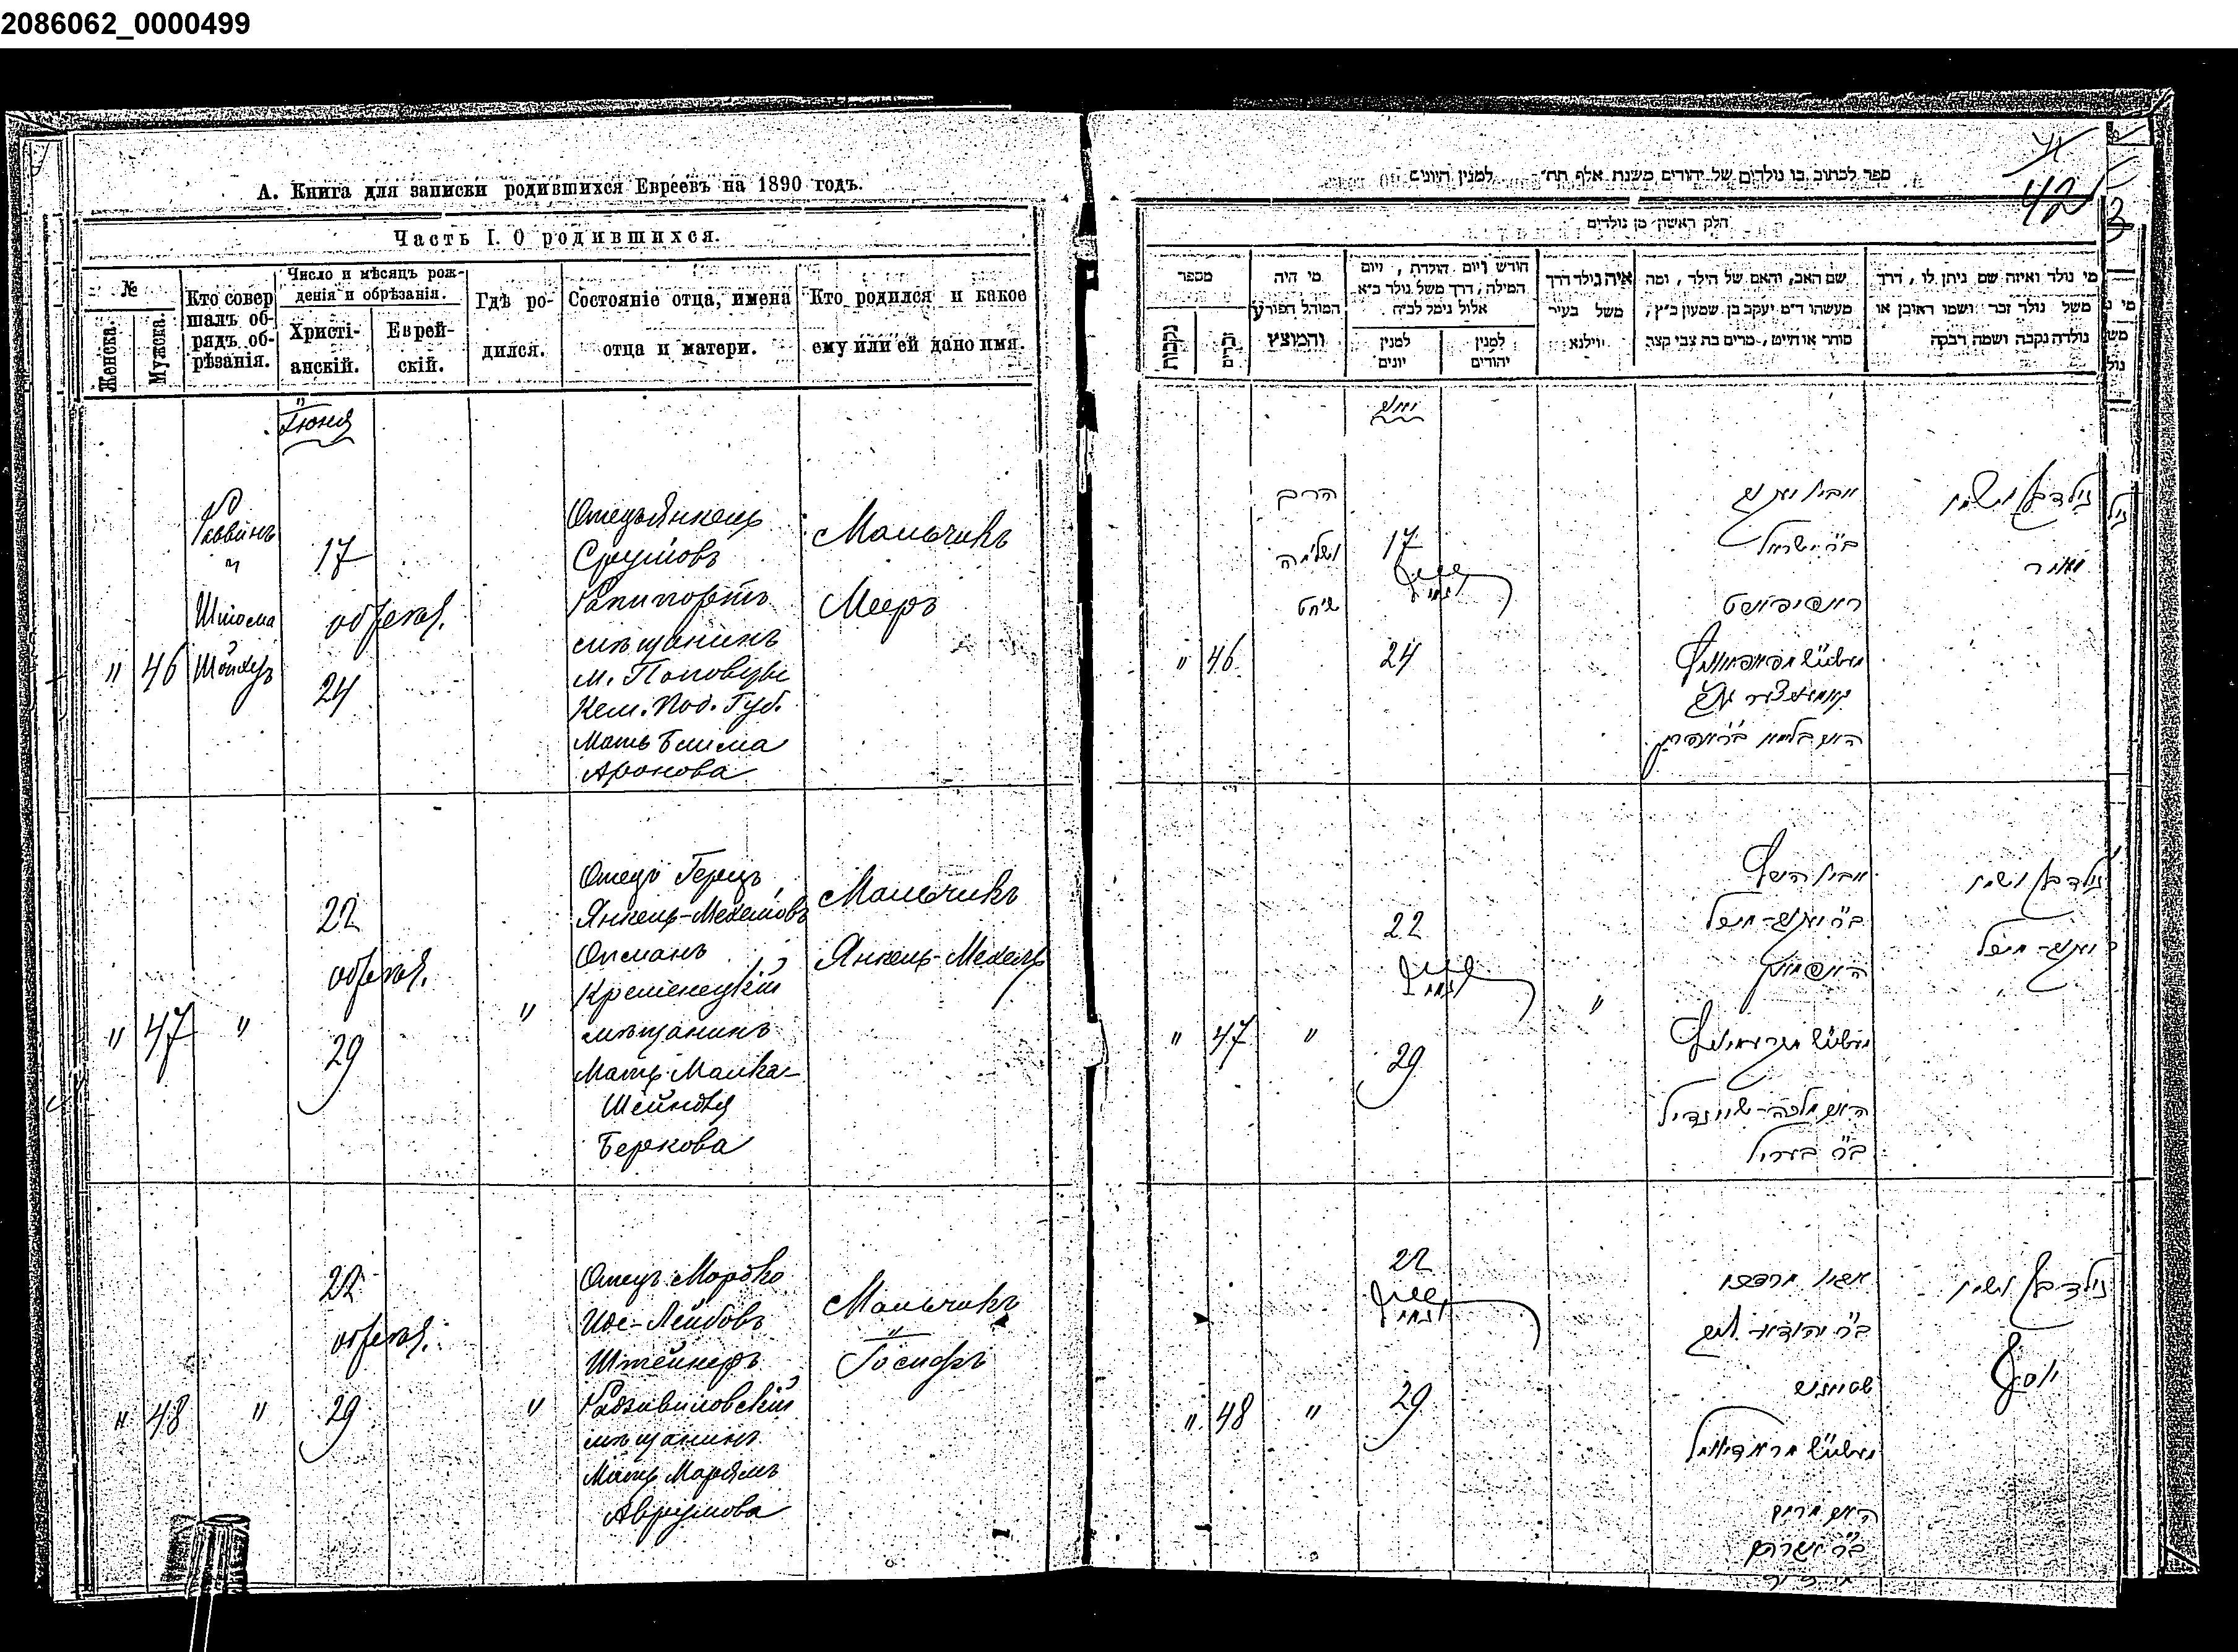 2086062_0000499
А. Книга для записки родившихся Евреевъ на 1890 годъ.
Часть I. О родившихся.
№
Женска.
Мужска.
Кто совер
шалъ об-
рядъ об-
рѣзанія.
Число и мѣсяцъ рож-
денія и обрѣзанія.
Христі-
анскій.
Еврей-
скій.
Гдѣ ро-
дился.
Состояніе отца, имена
отца и матери.
Кто родился и какое
ему или ей дано имя.
Іюня
" 46
Раввинъ
и
Шлома
Шойхетъ
17
обрезан.
24
Отецъ Янкель
Сруловъ
Рапипортъ
мѣщанинъ
м. Поповцы
Кам. Под. Губ.
Мать Блима
Аронова
Мальчикъ
Мееръ
" 47 "
22
обрезан.
29
"
Отецъ Герцъ
Янкель-Мехеловъ
мѣщанинъ
Кременецкій
Мать Малка-
Шейндля
Беркова
Мальчикъ
Янкель-Мехель
" 48 "
22
обрезан.
29
"
Отецъ Мордко
Иде-Лейбовъ
Штейнеръ
Радзивиловскій
мѣщанинъ
Мать Марьямъ
Аврумова
Мальчикъ
Іосифъ
42
ספר לכתוב בו נולדים של יהודים משנת אלף תת״ למנין היונים
חלק ראשון מן נולדים
מספר
נקבות
זכרים
מי היה
המוהל הפורע
והמוצץ
חודש ויום הולדת, ויום
המילה, דרך משל נולד כ״א
אלול נימל לכ״ח
למנין
יונים
למנין
יהודים
איה נולד דרך
משל בעיר
ווילנא
שם האב, והאם של הילד, ומה
מעשהו ד״מ יעקב בן שמעון כ״ץ,
סוחר או חייט, מרים בת צבי קצה
מי נולד ואיזה שם ניתן לו, דרך
משל נולד זכר ושמו ראובן או
נולדה נקבה ושמה רבקה
יוני
" 46
הרב
ושלמה
שוחט
17
נימול
24
אביו יענקל
ב״ר ישראל
ראפיפארט
נולד בן ושמו
מאיר
" 47 "
22
נימול
29
"
אביו הערץ
ב״ר יענקל-מיכל
האם מלכה-שיינדיל
ב״ר בעריל
נולד בן ושמו
יענקל-מיכל
" 48 "
22
נימול
29
אביו מרדכי
ב״ר יהודא-ליב
האם מרים
נולד בן ושמו
יוסף